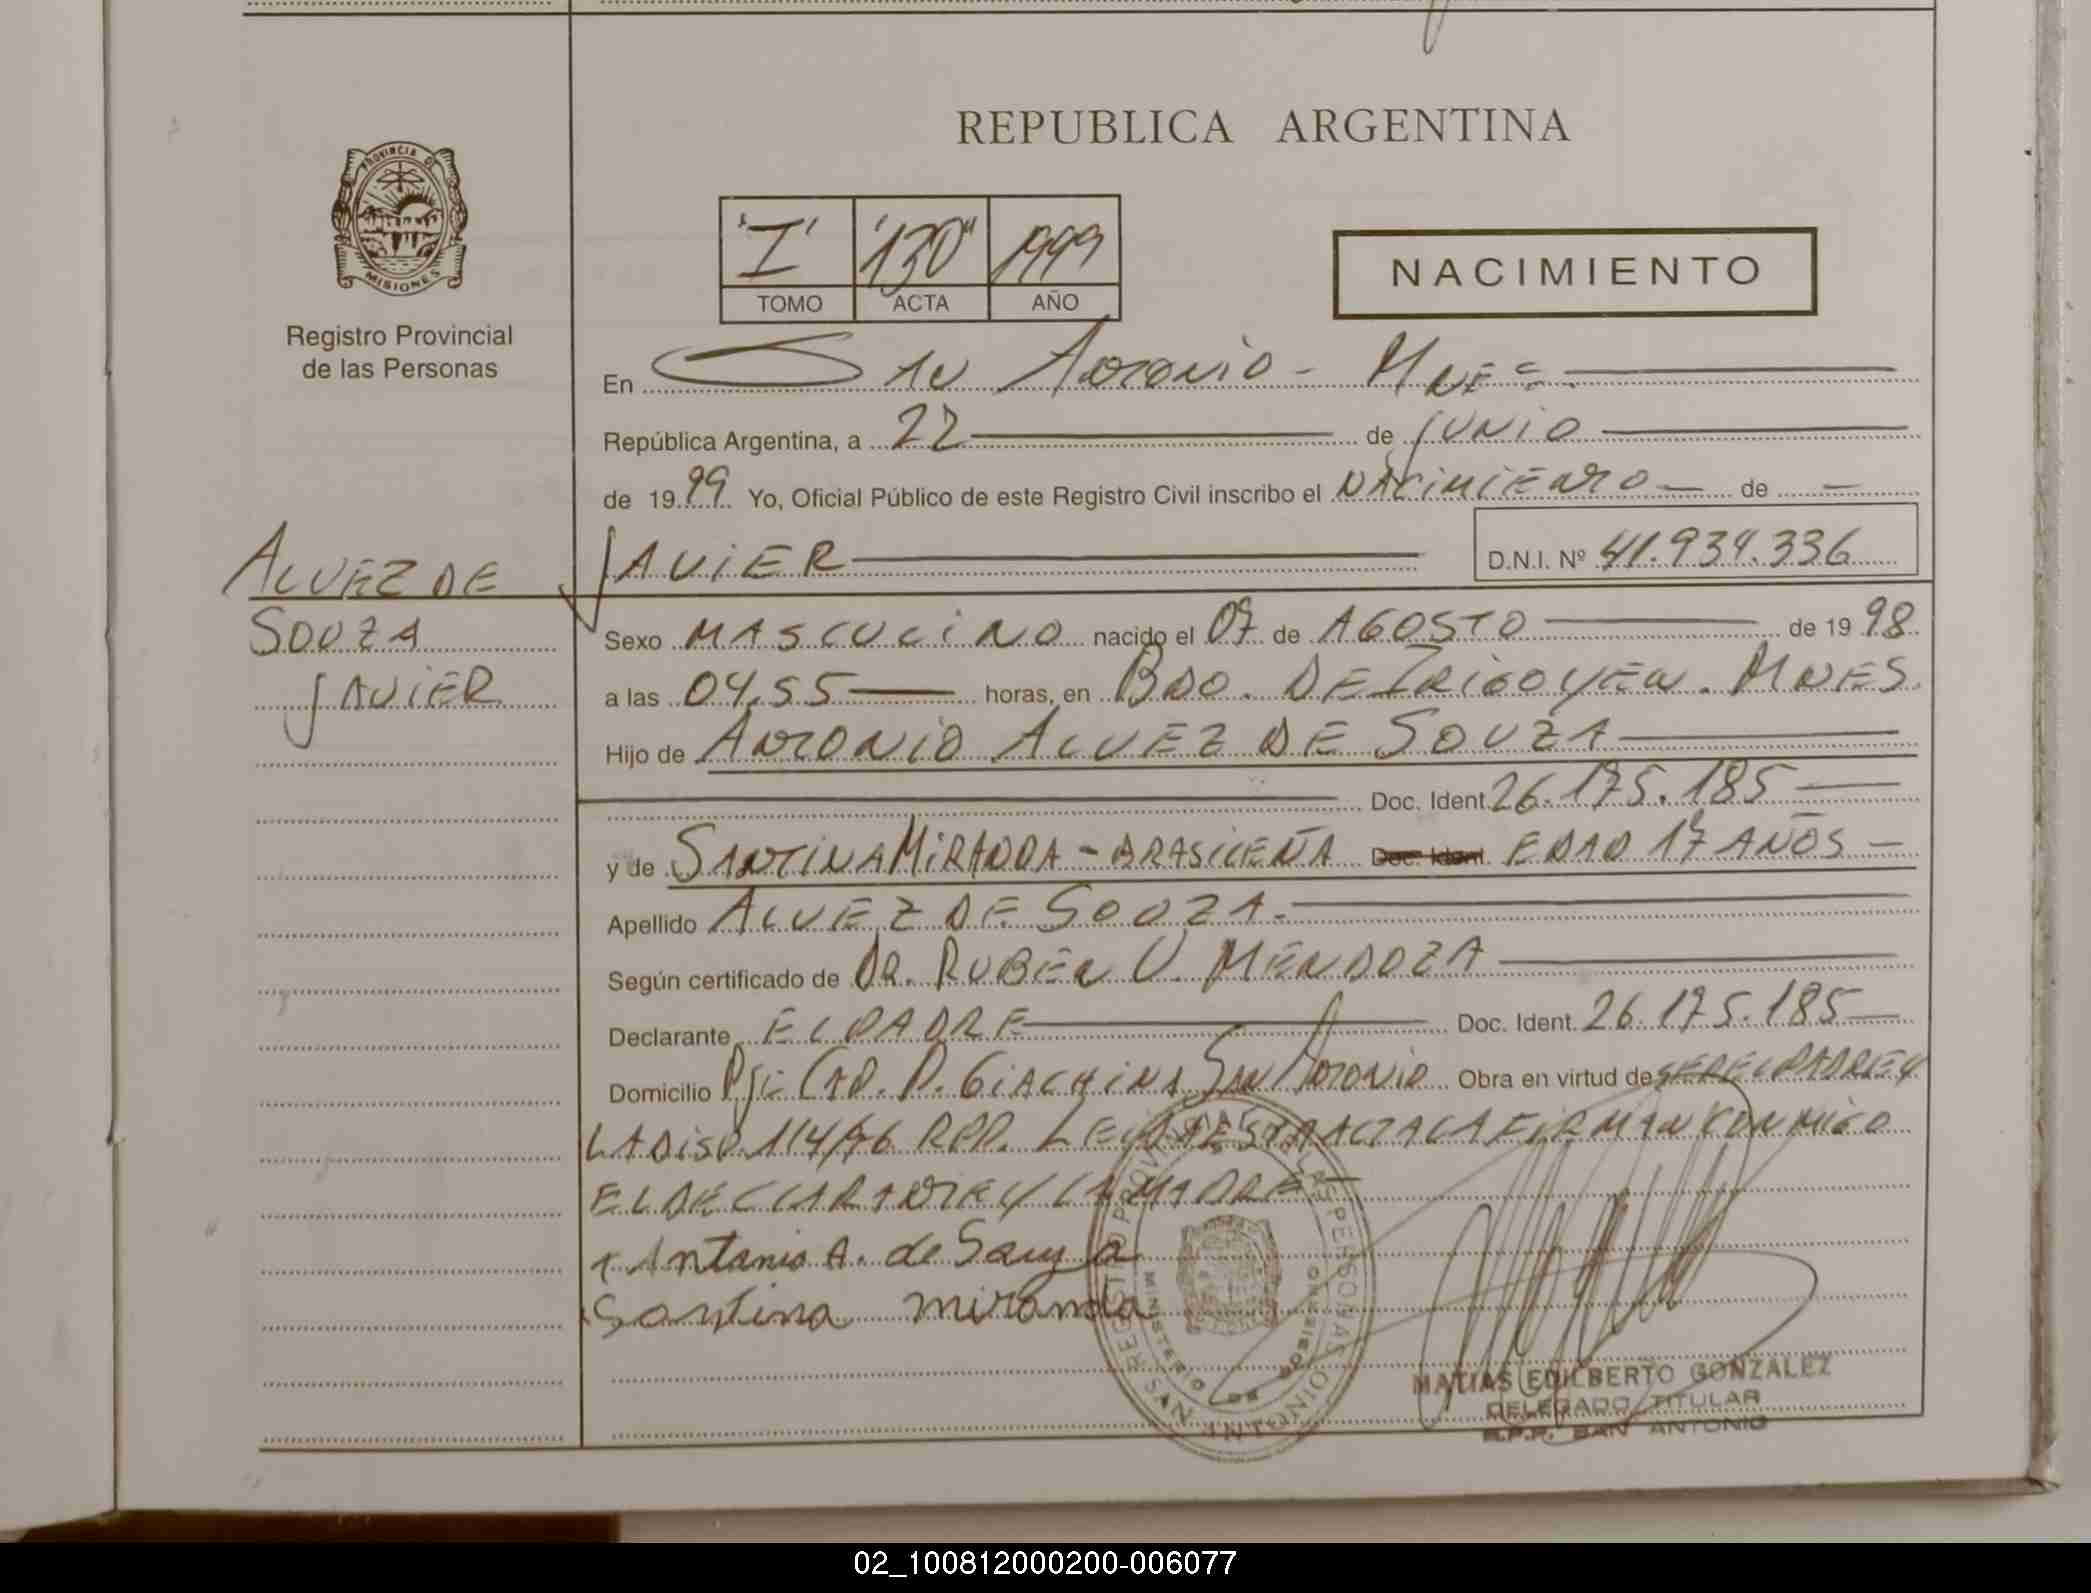 REPUBLICA ARGENTINA
PROVINCIA DE
MISIONES
Registro Provincial
de las Personas
"I" "130" 1999
TOMO ACTA AÑO
NACIMIENTO
En San Antonio - Mnes.
República Argentina, a 22 de Junio
de 1999. Yo, Oficial Público de este Registro Civil inscribo el NACIMIENTO de
JAVIER D.N.I. Nº 41.934.336
ALVEZ DE
SOUZA
JAVIER
Sexo MASCULINO nacido el 07 de AGOSTO de 1998
a las 04,55 horas, en BDO. DE IRIGOYEN. MNES.
Hijo de ANTONIO ALVEZ DE SOUZA
Doc. Ident. 26.175.185
y de SANTINA MIRANDA - BRASILEÑA Doc. Ident. EDAD 17 AÑOS
Apellido ALVEZ DE SOUZA.
Según certificado de DR. RUBEN V. MENDOZA
Declarante EL PADRE Doc. Ident. 26.175.185
Domicilio Pje CAP. P. GIACHINA SAN ANTONIO Obra en virtud de SER EL PADRE Y
LA DISP. 114/76 RPP. LEIDA ESTA ACTA LA FIRMAN CONMIGO
EL DECLARANTE Y LA MADRE
Antonio A. de Souza
Santina miranda
REGISTRO PROVINCIAL DE LAS PERSONAS
MINISTERIO DE GOBIERNO
SAN ANTONIO
MATIAS EDILBERTO GONZALEZ
DELEGADO TITULAR
R.P.P. SAN ANTONIO
02_100812000200-006077